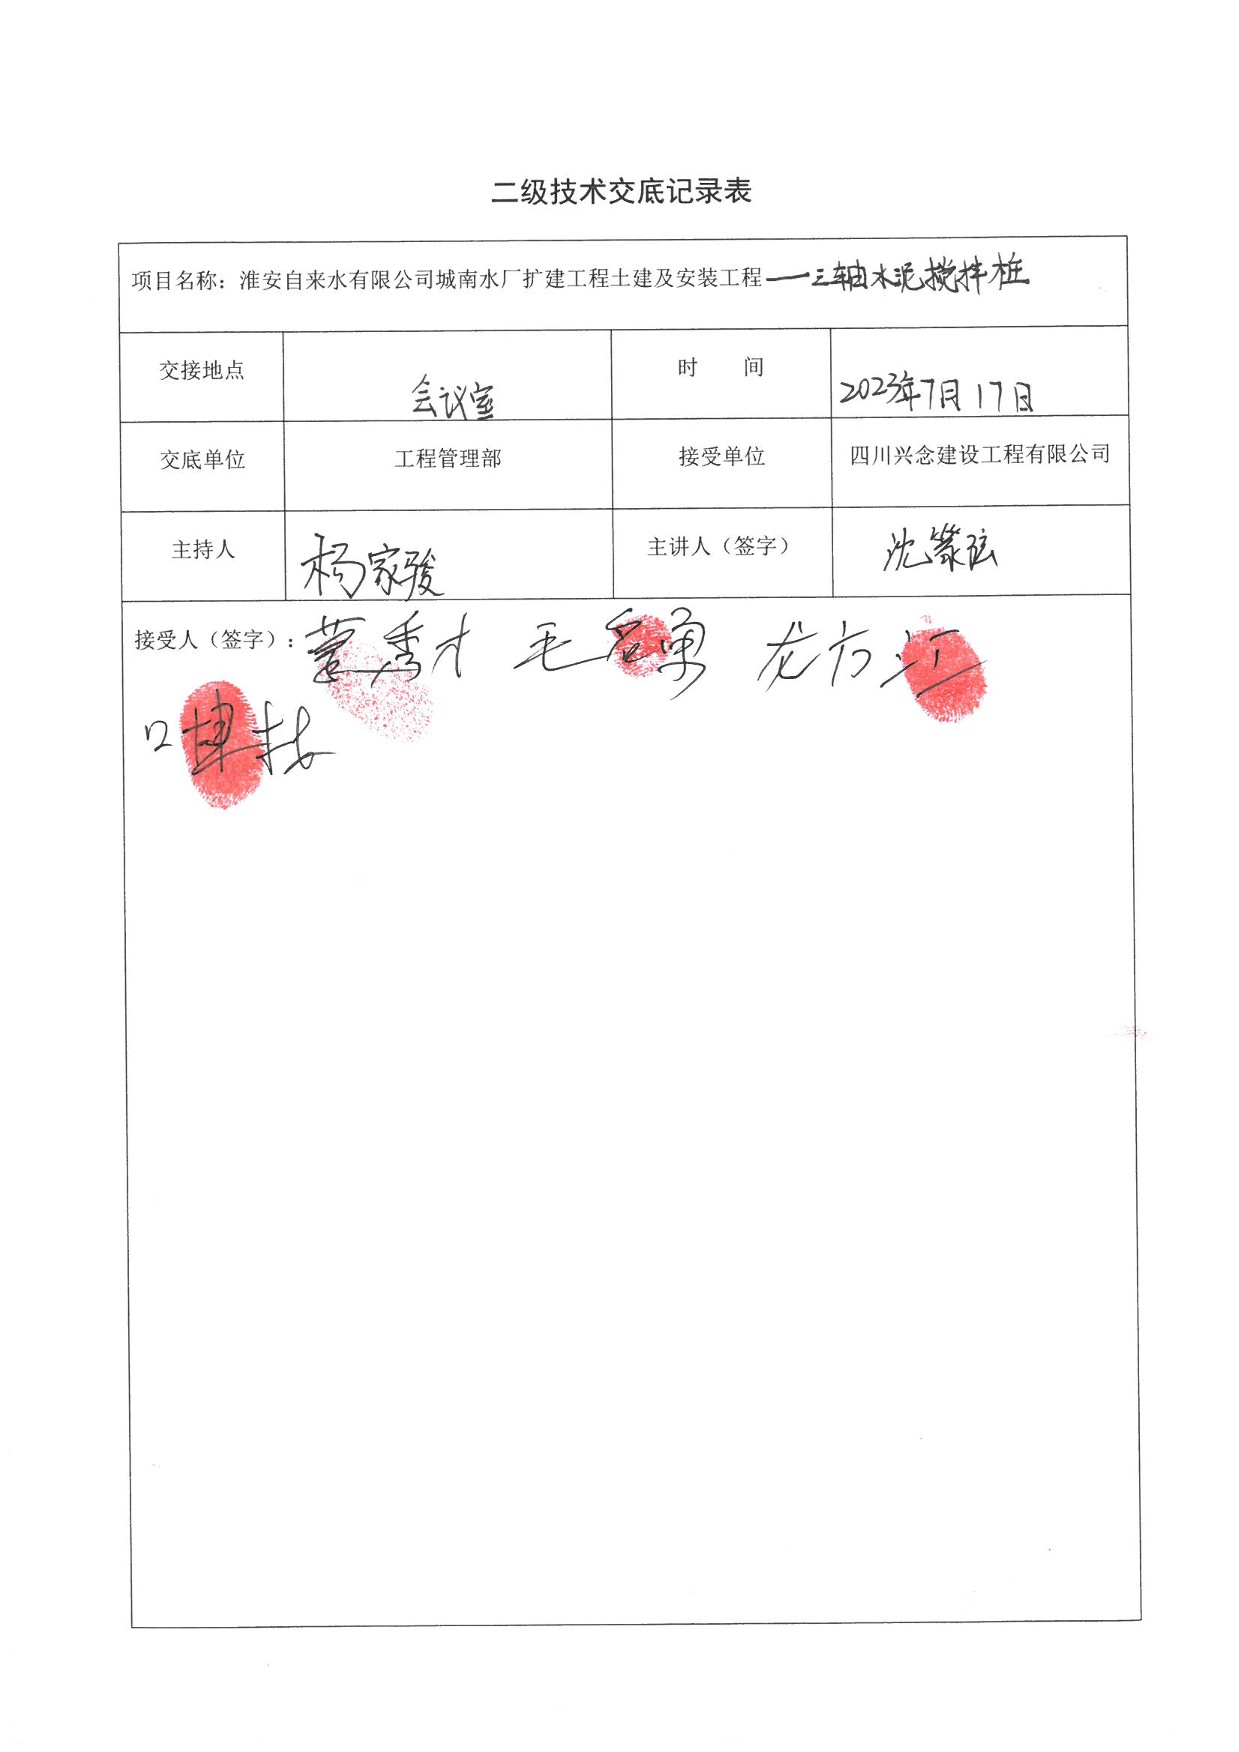 二级技术交底记录表
项目名称：淮安自来水有限公司城南水厂扩建工程土建及安装工程——三轴水泥搅拌桩
交接地点 会议室 时 间 2023年7月17日
交底单位 工程管理部 接受单位 四川兴念建设工程有限公司
主持人 杨家骏 主讲人（签字） 沈
接受人（签字）：秀才 毛 勇 龙方江